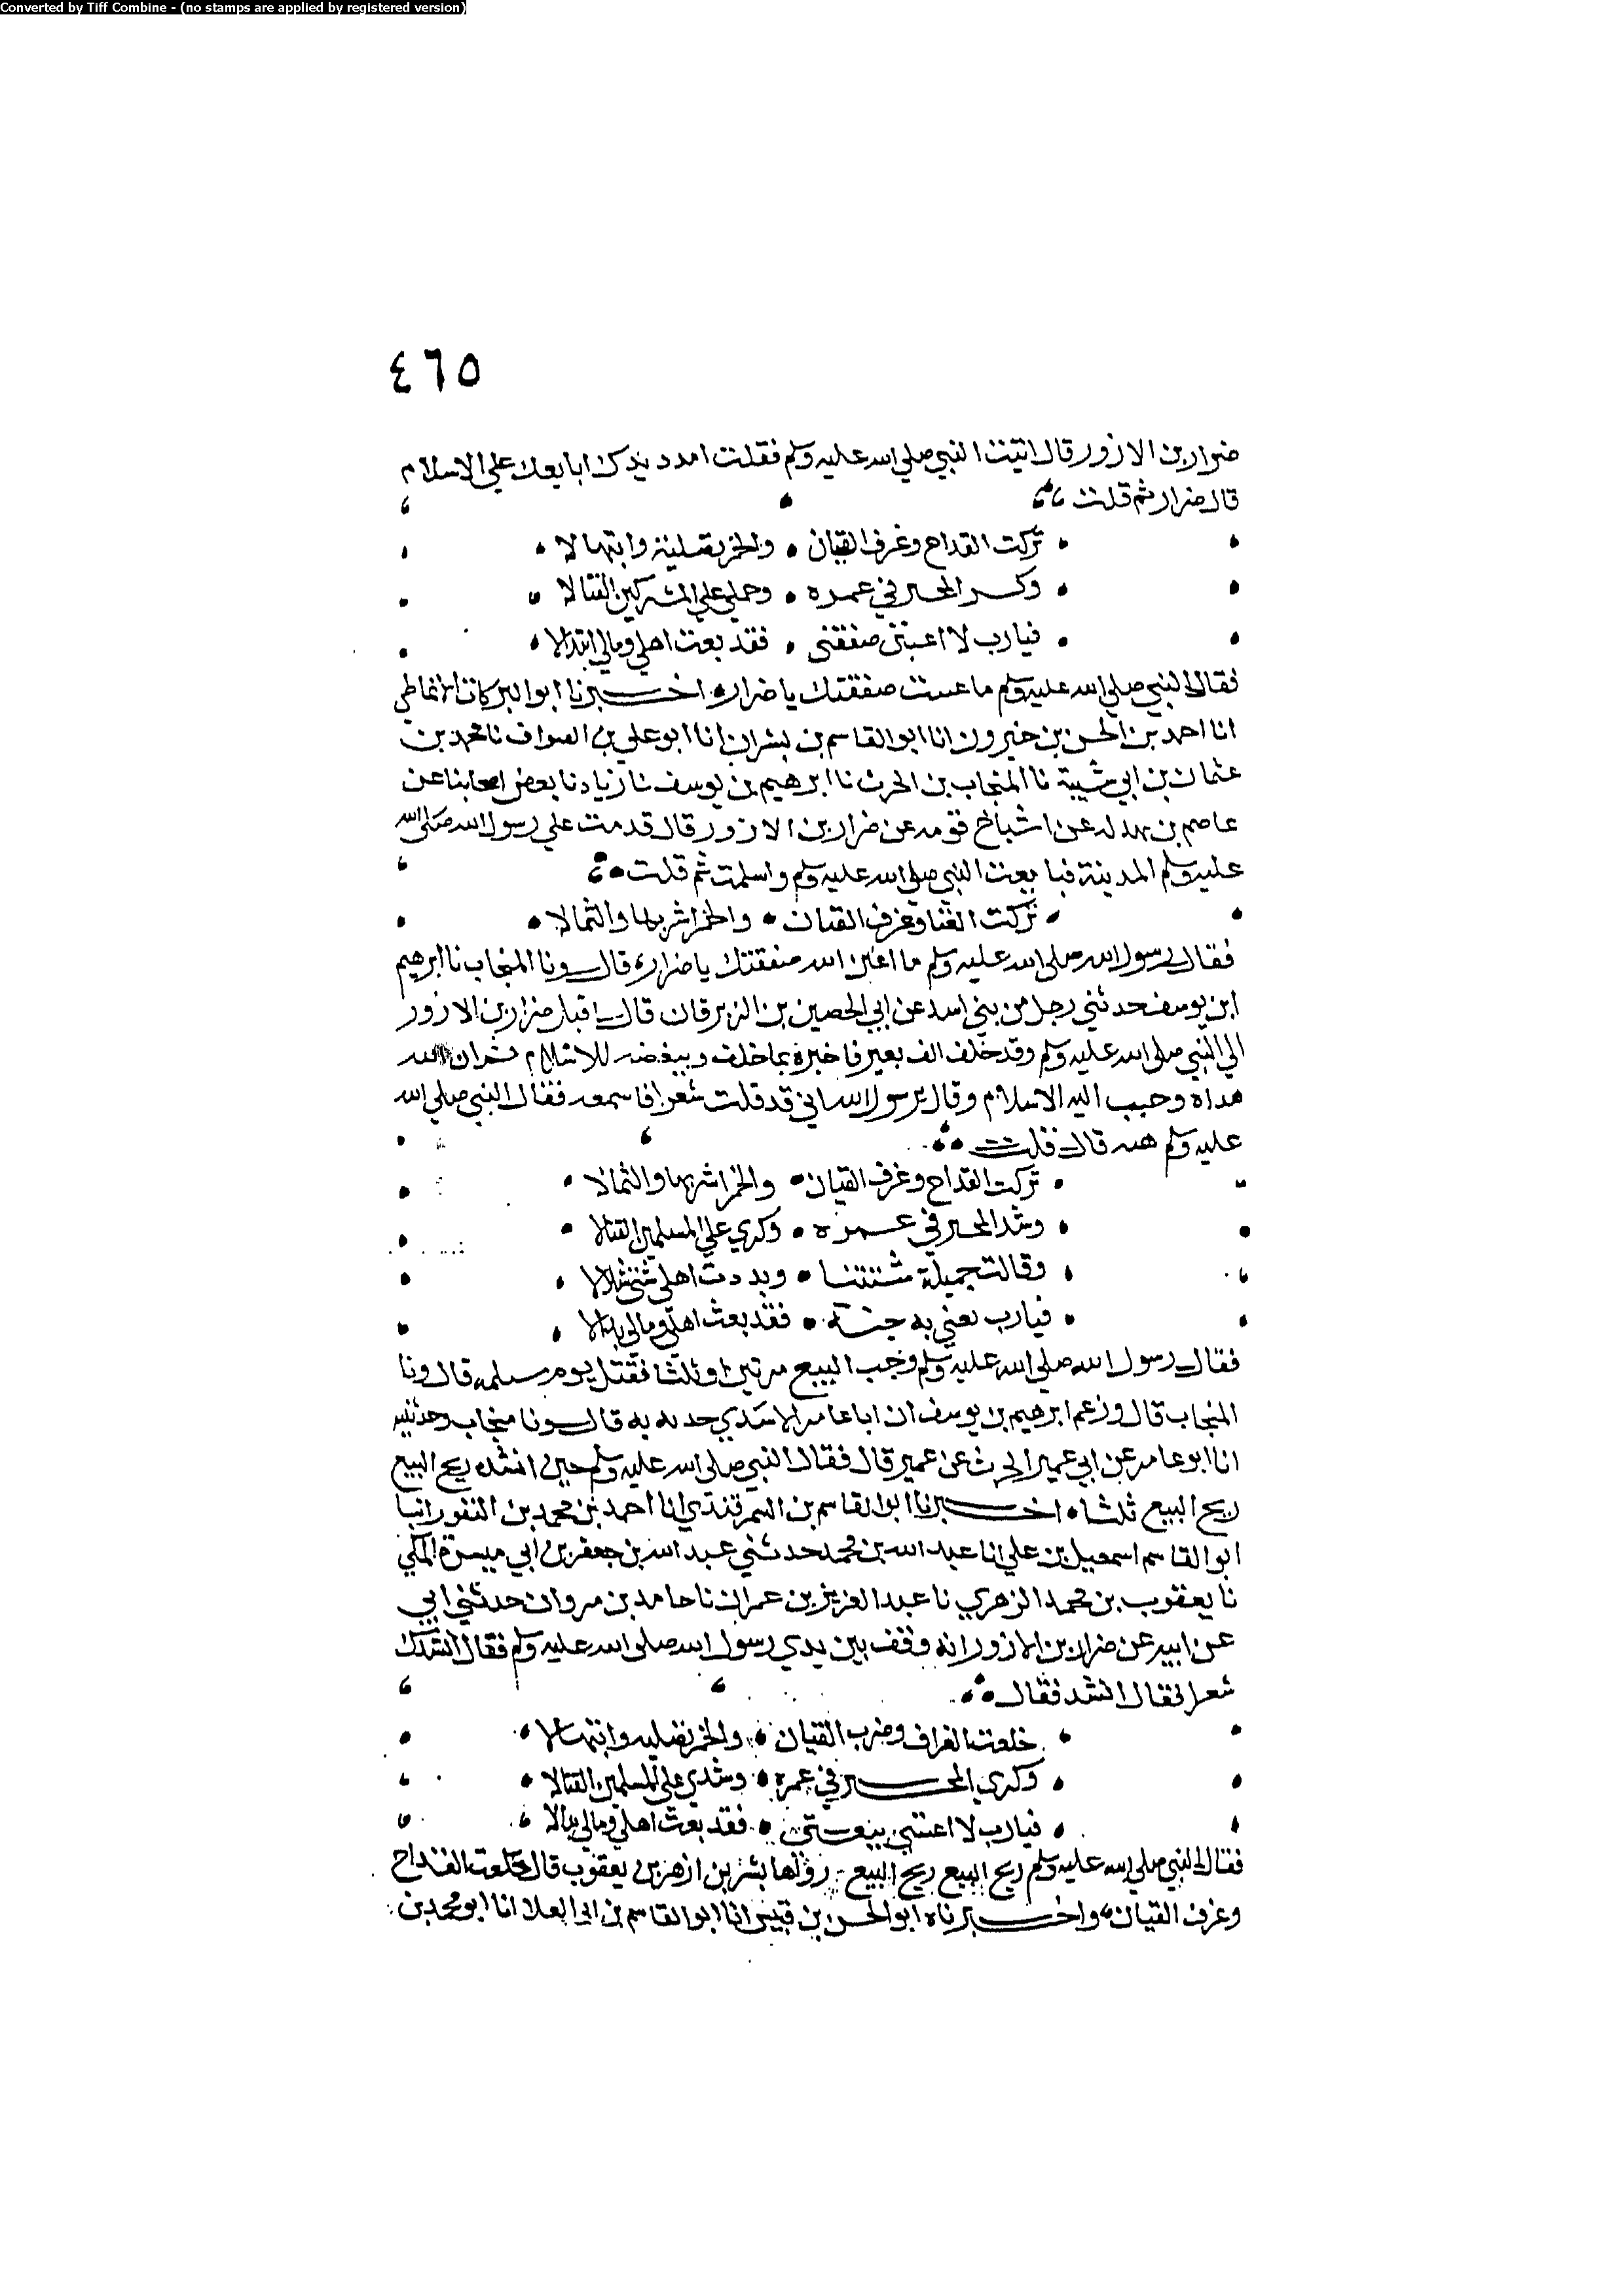 Converted by Tiff Combine - (no stamps are applied by registered version)
٤٦٥
ضرار بن الازور قال اتيت النبي صلى الله عليه وسلم فقلت امدد يدك ابايعك علي الاسلام
قال ضرار ثم قلت
تركت القداح وعزف القيان • والخمر تصلية وابتهالا
وكر المحبر في غمره • وحملي علي المشركين القتالا
فيارب لا اغبنن صفقتي • فقد بعت اهلي ومالي ابتدالا
فقال النبي صلى الله عليه وسلم ما غبنت صفقتك يا ضرار • اخبرنا ابو البركات الانماطي
انا احمد بن الحسن بن خيرون انا ابو القاسم بن بشران انا ابو علي بن الصواف نا محمد بن
عثمان بن ابي شيبة نا المنجاب بن الحرث نا ابرهيم بن يوسف نا زياد نا بعض اصحابنا عن
عاصم بن بهدله عن اشياخ قومه عن ضرار بن الازور قال قدمت علي رسول الله صلى الله
عليه وسلم المدينة فبايعت النبي صلى الله عليه وسلم واسلمت ثم قلت •
تركت الغنا وعزف القيان • والخمر اشربها والثمالا •
فقال رسول الله صلى الله عليه وسلم ما اغبن الله صفقتك يا ضرار، قال ونا المنجاب نا ابرهيم
ابن يوسف حدثني رجل من بني اسد عن ابي الحصين بن الزبرقان قال اقبل ضرار بن الازور
الي النبي صلى الله عليه وسلم وقد خلف الف بعير فاخبره بما خلف وببغضه للاسلام ثم ان الله
هداه وحبب اليه الاسلام وقال يرسول الله اني قد قلت شعرا فاسمعه فقال النبي صلي الله
عليه وسلم هيه قال قلت
تركت القداح وعزف القيان • والخمر اشربها والثمالا •
وشد المحبر في غمره • وكري علي المسلمين القتالا •
وقالت جميلة شتتنا • وبددت اهلي شتى شلالا
فيارب بعني به جنة • فقد بعت اهلي ومالي بدالا
فقال رسول الله صلي الله عليه وسلم وجب البيع مرتين او ثلثا فقتل يوم مسيلمه قال ونا
المنجاب قال وزعم ابرهيم بن يوسف ان ابا عامر الاسدي حدثه به قال ونا منجاب وحدثنيه
انا ابو عامر عن ابي عمير الحرث عن عمير قال فقال النبي صلى الله عليه وسلم حين انشده ربح البيع
ربح البيع ثلثا • اخبرنا ابو القاسم بن السمرقندي انا احمد بن محمد بن النقور انبا
ابو القاسم اسمعيل بن علي انا عبد الله بن محمد حدثني عبد الله بن جعفر بن ابي ميسرة المكي
نا يعقوب بن محمد الزهري نا عبد العزيز بن عمران نا حامد بن مروان حدثني ابي
عن ابيه عن ضرار بن الازور انه وقف بين يدي رسول الله صلى الله عليه وسلم فقال انشدك
شعرا فقال انشد فقال •
خلعت العزاف وضرب القيان • والخمر تصلية وابتهالا
وكري المحبر في غمره • وشدي علي المسلمين القتالا •
فيارب لا اغبنن بيعتي • فقد بعت اهلي ومالي بدالا
فقال النبي صلي الله عليه وسلم ربح البيع ربح البيع رواها بشر بن ازهر بن يعقوب قال خلعت القداح
وعزف القيان • واخبرناه ابو الحسن بن قبيس انا ابو القاسم بن ابي العلا انا ابو محمد بن